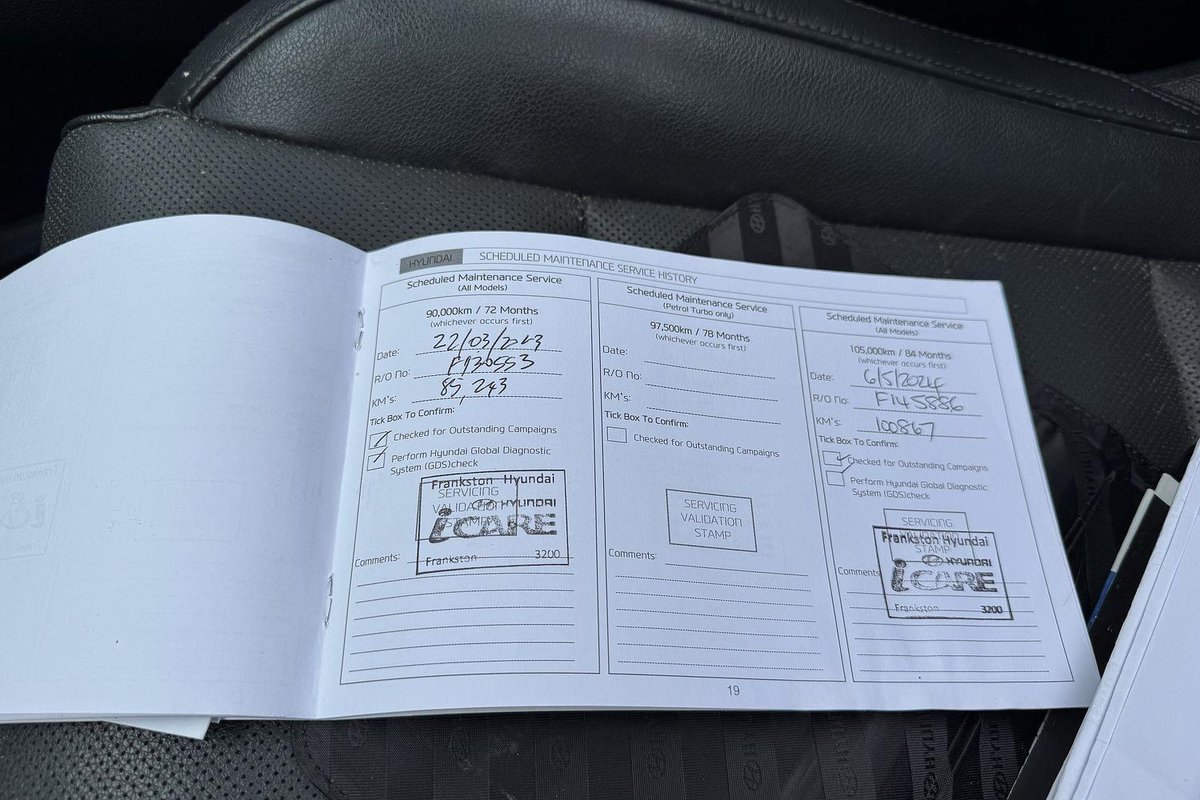 HYUNDAI SCHEDULED MAINTENANCE SERVICE HISTORY
Scheduled Maintenance Service
(All Models)
90,000km / 72 Months
(whichever occurs first)
Date: 22/03/2023
R/O No: F130553
KM's: 85,243
Tick Box To Confirm:
Checked for Outstanding Campaigns
Perform Hyundai Global Diagnostic
System (GDS)check
Frankston Hyundai
SERVICING
VALIDATION
STAMP
HYUNDAI
iCARE
Frankston 3200
Comments:
Scheduled Maintenance Service
(Petrol Turbo only)
97,500km / 78 Months
(whichever occurs first)
Date:
R/O No:
KM's:
Tick Box To Confirm:
Checked for Outstanding Campaigns
SERVICING
VALIDATION
STAMP
Comments:
Scheduled Maintenance Service
(All Models)
105,000km / 84 Months
(whichever occurs first)
Date: 6/5/2024
R/O No: F145886
KM's: 100867
Tick Box To Confirm:
Checked for Outstanding Campaigns
Perform Hyundai Global Diagnostic
System (GDS)check
SERVICING
Frankston Hyundai
STAMP
HYUNDAI
iCARE
Frankston 3200
Comments:
19